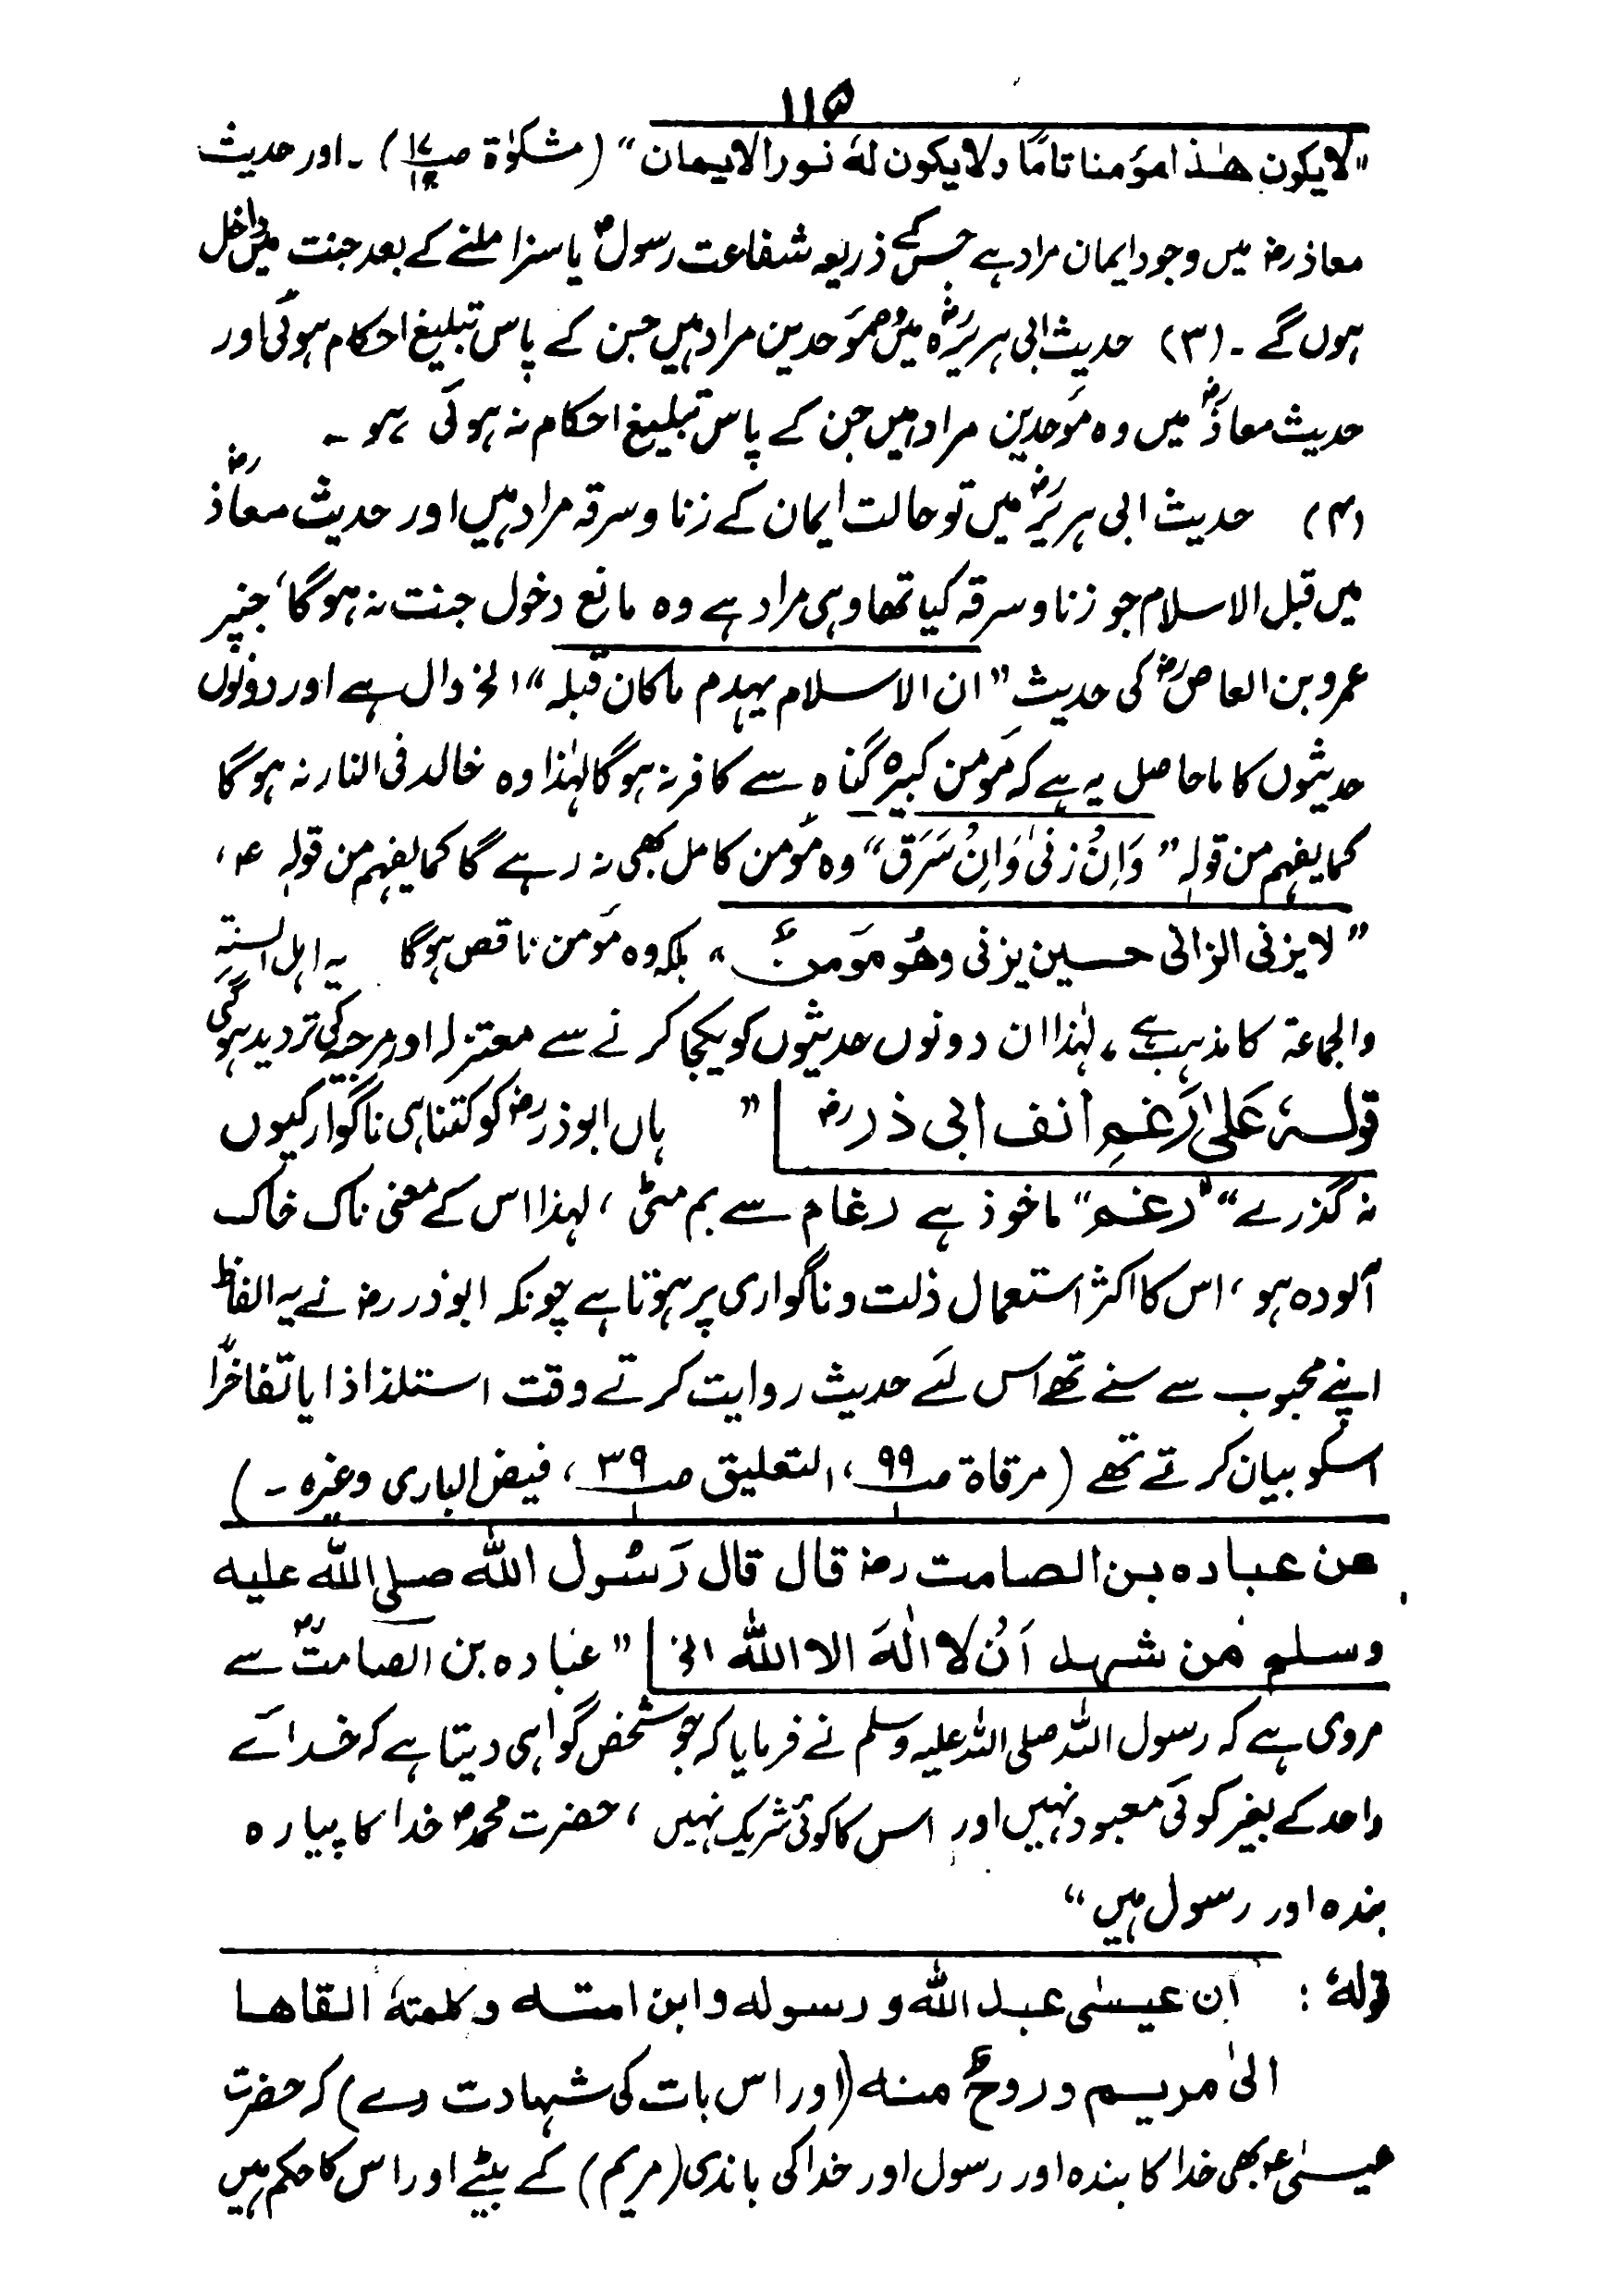 ۱۱۵
"لایکون ھٰذا مؤمنا تامًا ولا یکون لہٗ نور الایمان" (مشکوٰۃ صـ۱۷)۔ اور حدیث
معاذ رض میں وجود ایمان مراد ہے جس کے ذریعہ شفاعت رسولؐ یا سزا ملنے کے بعد جنت میں داخل
ہوں گے۔ (۳) حدیث ابی ہریرہؓ میں وہ مؤحدین مراد ہیں جن کے پاس تبلیغ احکام ہوئی اور
حدیث معاذؓ میں وہ مؤحدین مراد ہیں جن کے پاس تبلیغ احکام نہ ہوئی ہو۔
(۴) حدیث ابی ہریرؓہ میں تو حالت ایمان کے زنا و سرقہ مراد ہیں اور حدیث معاذؓ
میں قبل الاسلام جو زنا و سرقہ کیا تھا وہی مراد ہے وہ مانع دخول جنت نہ ہوگا، جنپر
عمرو بن العاصؓ کی حدیث "ان الاسلام یہدم ماکان قبلہ" الخ دال ہے اور دونوں
حدیثوں کا ماحاصل یہ ہے کہ مؤمن کبیرہ گناہ سے کافر نہ ہوگا لہٰذا وہ خالد فی النار نہ ہوگا
کما یفہم من قولہ "وَاِنْ زنیٰ وَاِنْ سَرَق" وہ مؤمن کامل بھی نہ رہے گا کما یفہم من قولہ ؑ،
"لا یزنی الزانی حسین یزنی وھُو مؤمنٌ" بلکہ وہ مؤمن ناقص ہوگا یہ اہل السنۃ
والجماعۃ کا مذہب ہے، لہٰذا ان دونوں حدیثوں کو یکجا کرنے سے معتزلہ اور مرجیہ کی تردید ہوگی
قولہٗ عَلیٰ رَغمِ اَنف ابی ذر رض " ہاں ابوذر رض کو کتنا ہی ناگوار کیوں
نہ گذرے" "رغم" ماخوذ ہے رغام سے بم مٹی، لہذا اس کے معنی ناک خاک
آلودہ ہو، اس کا اکثر استعمال ذلت و ناگواری پر ہوتا ہے چونکہ ابوذر رض نے یہ الفاظ
اپنے محبوب سے سنے تھے اس لئے حدیث روایت کرتے وقت استلذاذا یا تفاخرًا
اسکو بیان کرتے تھے (مرقاۃ صـ۹۹، التعلیق صـ۳۹، فیض الباری وغیرہ۔)
عن عبادہ بن الصامت رض قال قال رَسُول اللّٰہ صلی اللّٰہ علیہ
وسلم مَن شہد اَنْ لا الٰہَ الا اللّٰہ الخ "عبادہ بن الصامتؓ سے
مروی ہے کہ رسول اللہ صلی اللہ علیہ وسلم نے فرمایا کہ جو شخص گواہی دیتا ہے کہ خدائے
واحد کے بغیر کوئی معبود نہیں اور اس کا کوئی شریک نہیں، حضرت محمدؐ خدا کا پیارہ
بندہ اور رسول ہیں"
قولہٗ : اَن عیسٰی عبد اللّٰہ و رسولہ وابن امتہ وکلمتہٗ القاھا
الیٰ مریم وروحٌ منہ (اور اس بات کی شہادت دے) کہ حضرت
عیسٰی ؑ بھی خدا کا بندہ اور رسول اور خدا کی باندی (مریم) کے بیٹے اور اس کا حکم ہیں